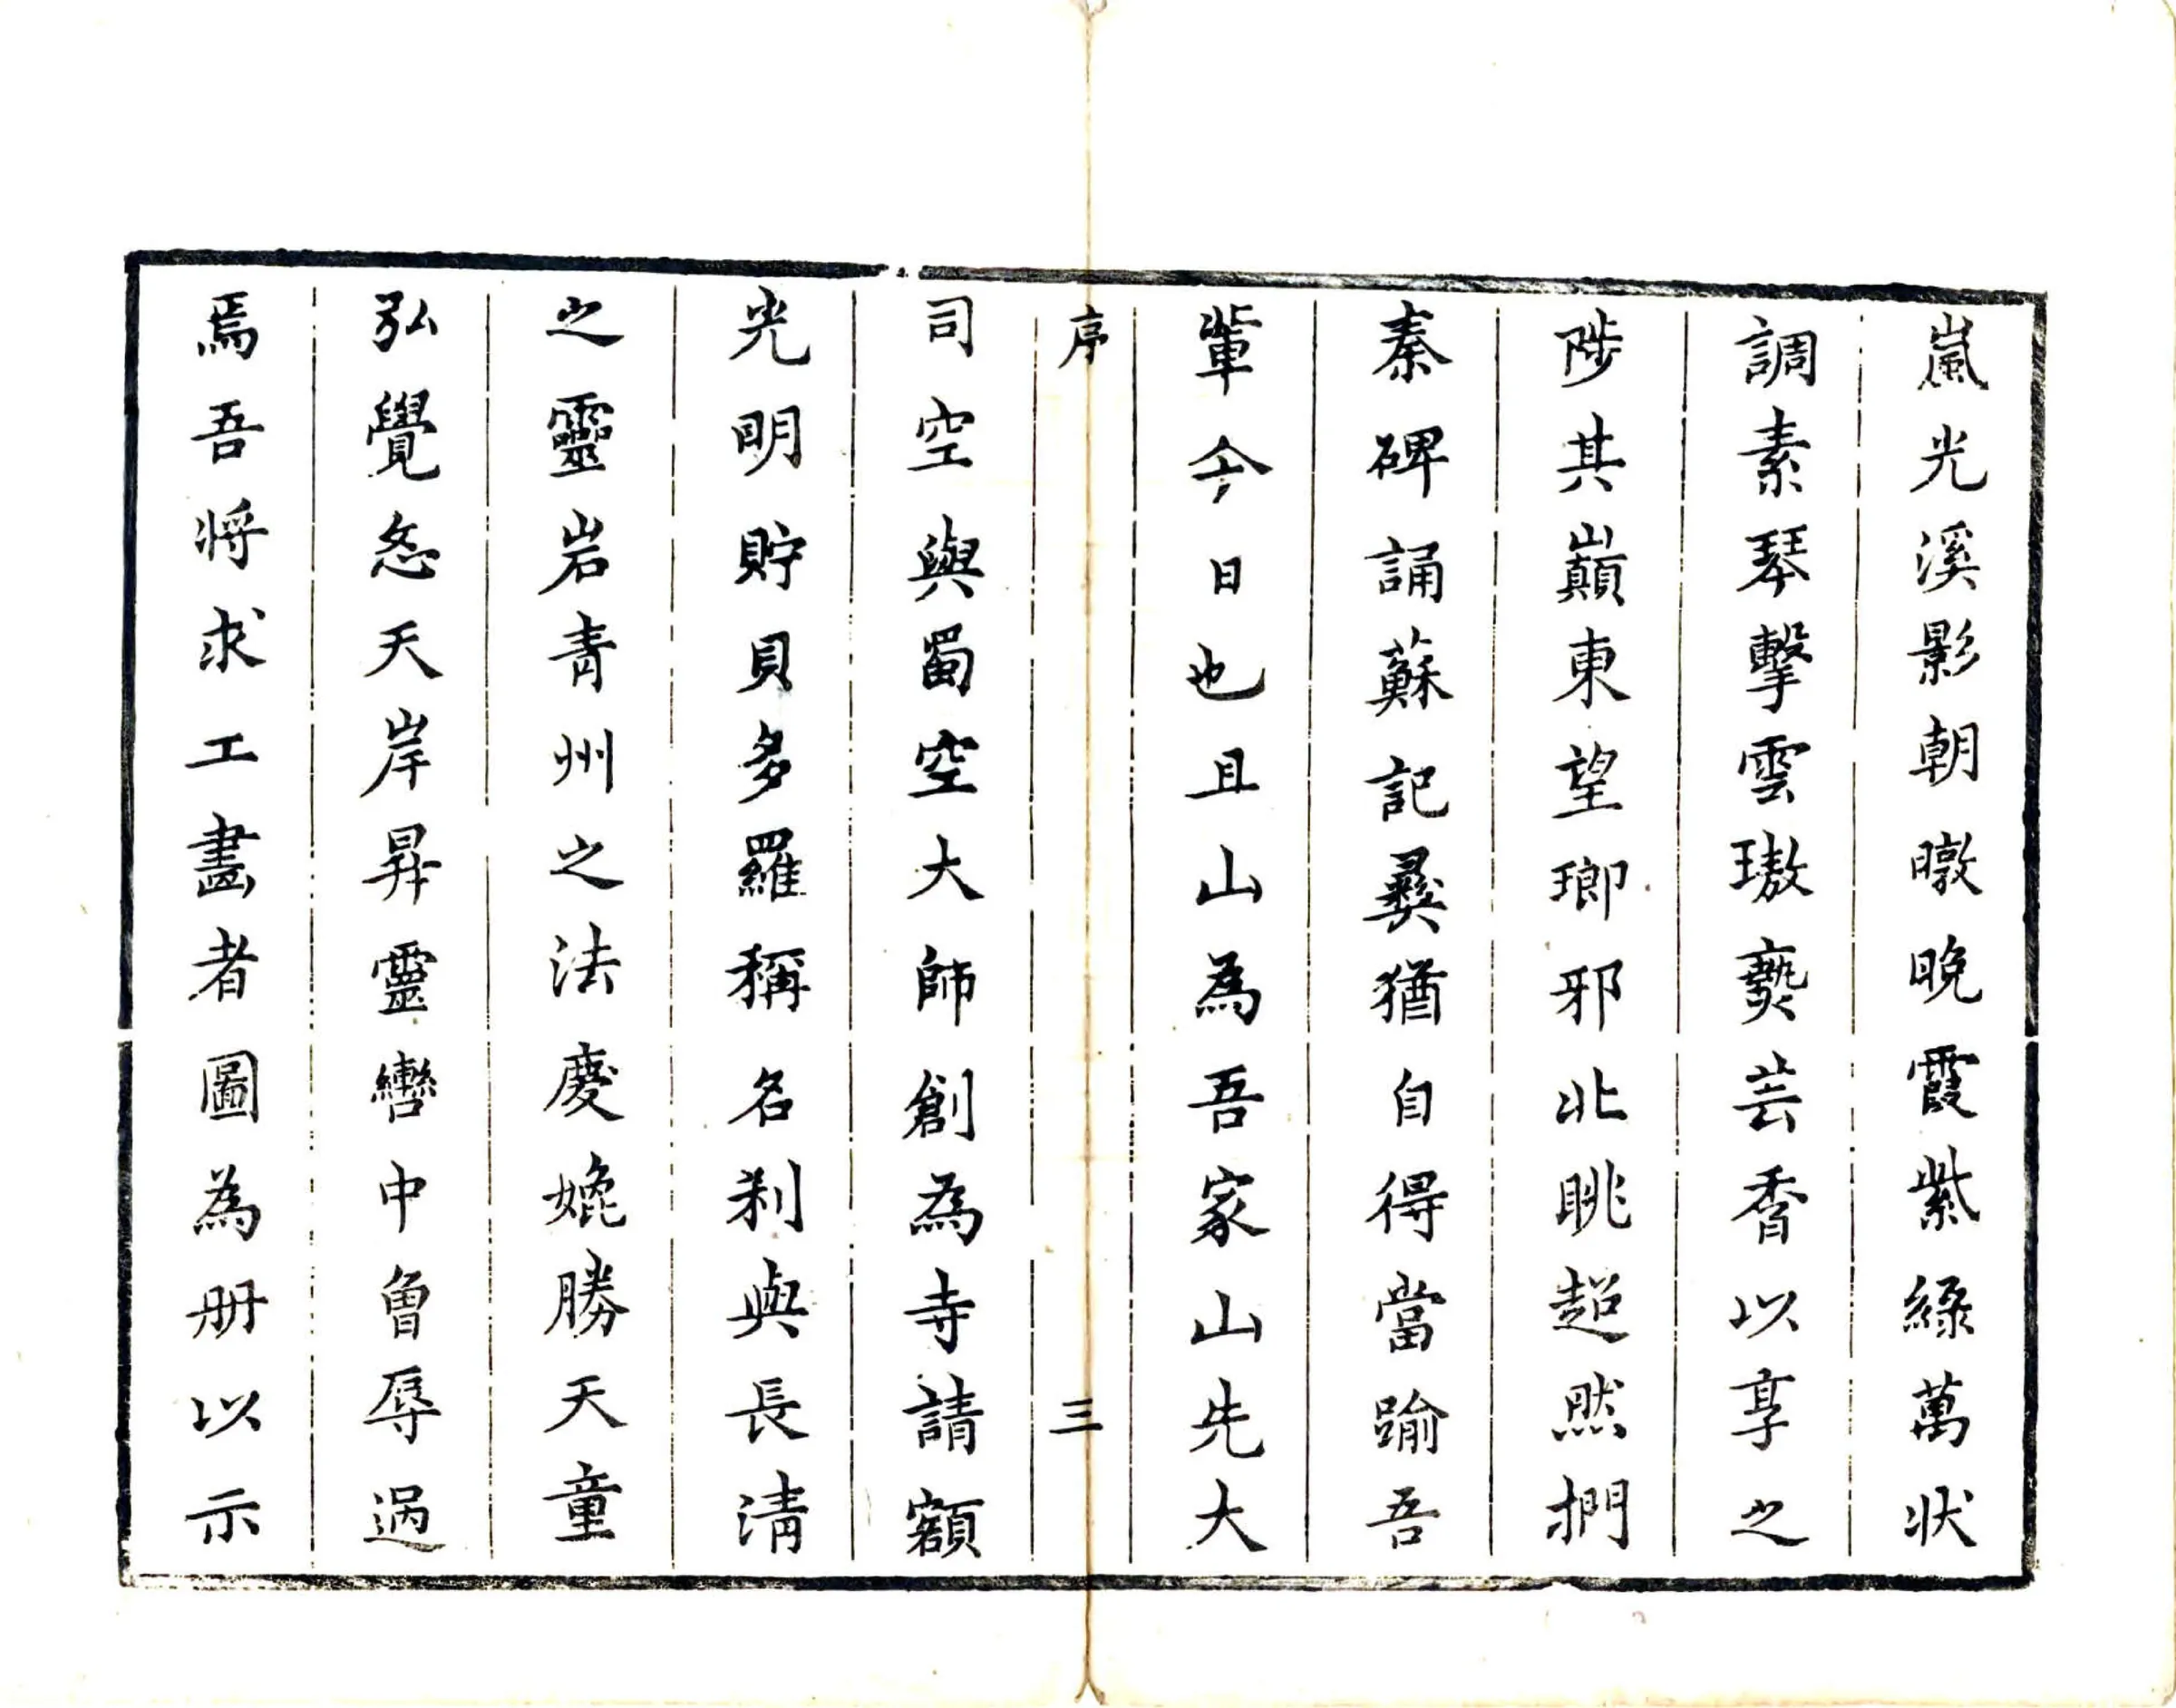 嵐光溪影朝暾晚霞紫綠萬状
調素琴擊雲璈爇芸香以享之
陟其巔東望瑯邪北眺超然捫
秦碑誦蘇記彛猶自得當踰吾
軰今日也且山為吾家山先大
序
三
司空與蜀空大師創為寺請額
光明貯貝多羅稱名刹與長清
之靈岩青州之法慶媲勝天童
弘覺忞天岸昇靈轡中魯辱過
焉吾将求工畫者圖為册以示